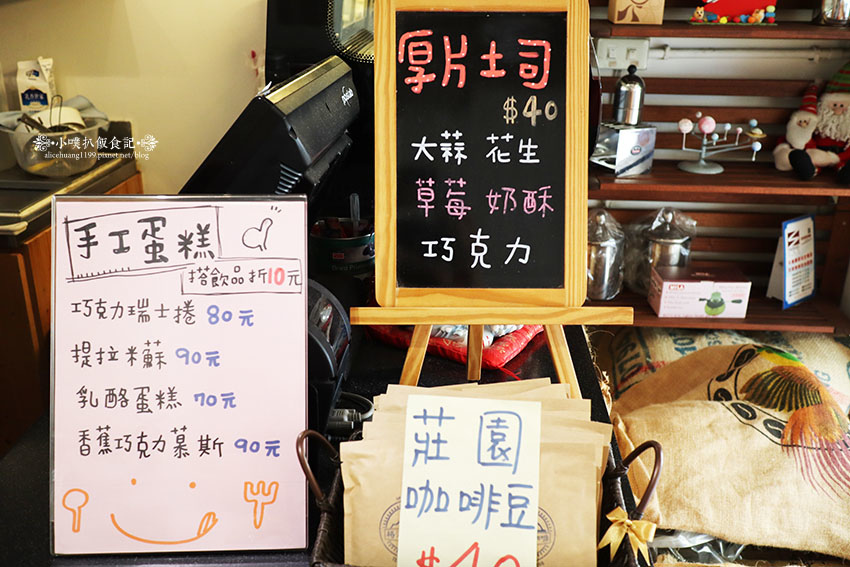 厚片土司
$40
大蒜 花生
草莓 奶酥
巧克力
手工蛋糕
搭飲品折10元
巧克力瑞士捲 80元
提拉米蘇 90元
乳酪蛋糕 70元
香蕉巧克力慕斯 90元
莊園
咖啡豆
$40
小噗扒飯食記
alicehuang1199.pixnet.net/blog